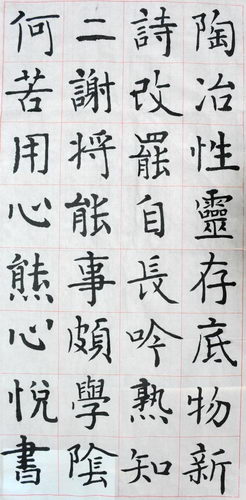 陶冶性靈存底物新
詩改罷自長吟熟知
二謝將能事頗學陰
何苦用心熊心悅書